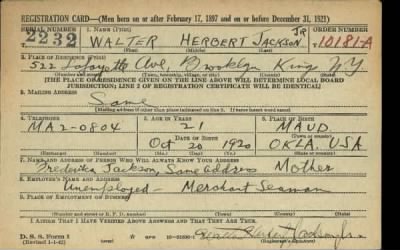 REGISTRATION CARD—(Men born on or after February 17, 1897 and on or before December 31, 1921)
SERIAL NUMBER 1. NAME (Print) ORDER NUMBER
2232 WALTER HERBERT JACKSON JR 10181-A
(First) (Middle) (Last)
2. PLACE OF RESIDENCE (Print)
522 Lafayette Ave, Brooklyn Kings NY
(Number and street) (Town, township, village, or city) (County) (State)
[THE PLACE OF RESIDENCE GIVEN ON THE LINE ABOVE WILL DETERMINE LOCAL BOARD
JURISDICTION; LINE 2 OF REGISTRATION CERTIFICATE WILL BE IDENTICAL]
3. MAILING ADDRESS
Same
[Mailing address if other than place indicated on line 2. If same insert word same]
4. TELEPHONE 5. AGE IN YEARS 6. PLACE OF BIRTH
MA2-0804 21 MAUD
DATE OF BIRTH (Town or county)
Oct 20 1920 OKLA, USA
(Exchange) (Number) (Mo.) (Day) (Yr.) (State or country)
7. NAME AND ADDRESS OF PERSON WHO WILL ALWAYS KNOW YOUR ADDRESS
Frederica Jackson, Same address Mother
8. EMPLOYER'S NAME AND ADDRESS
Unemployed - Merchant Seaman
9. PLACE OF EMPLOYMENT OR BUSINESS
(Number and street or R. F. D. number) (Town) (County) (State)
I AFFIRM THAT I HAVE VERIFIED ABOVE ANSWERS AND THAT THEY ARE TRUE.
D. S. S. Form 1
(Revised 1-1-42) (over)
(Registrant's signature)